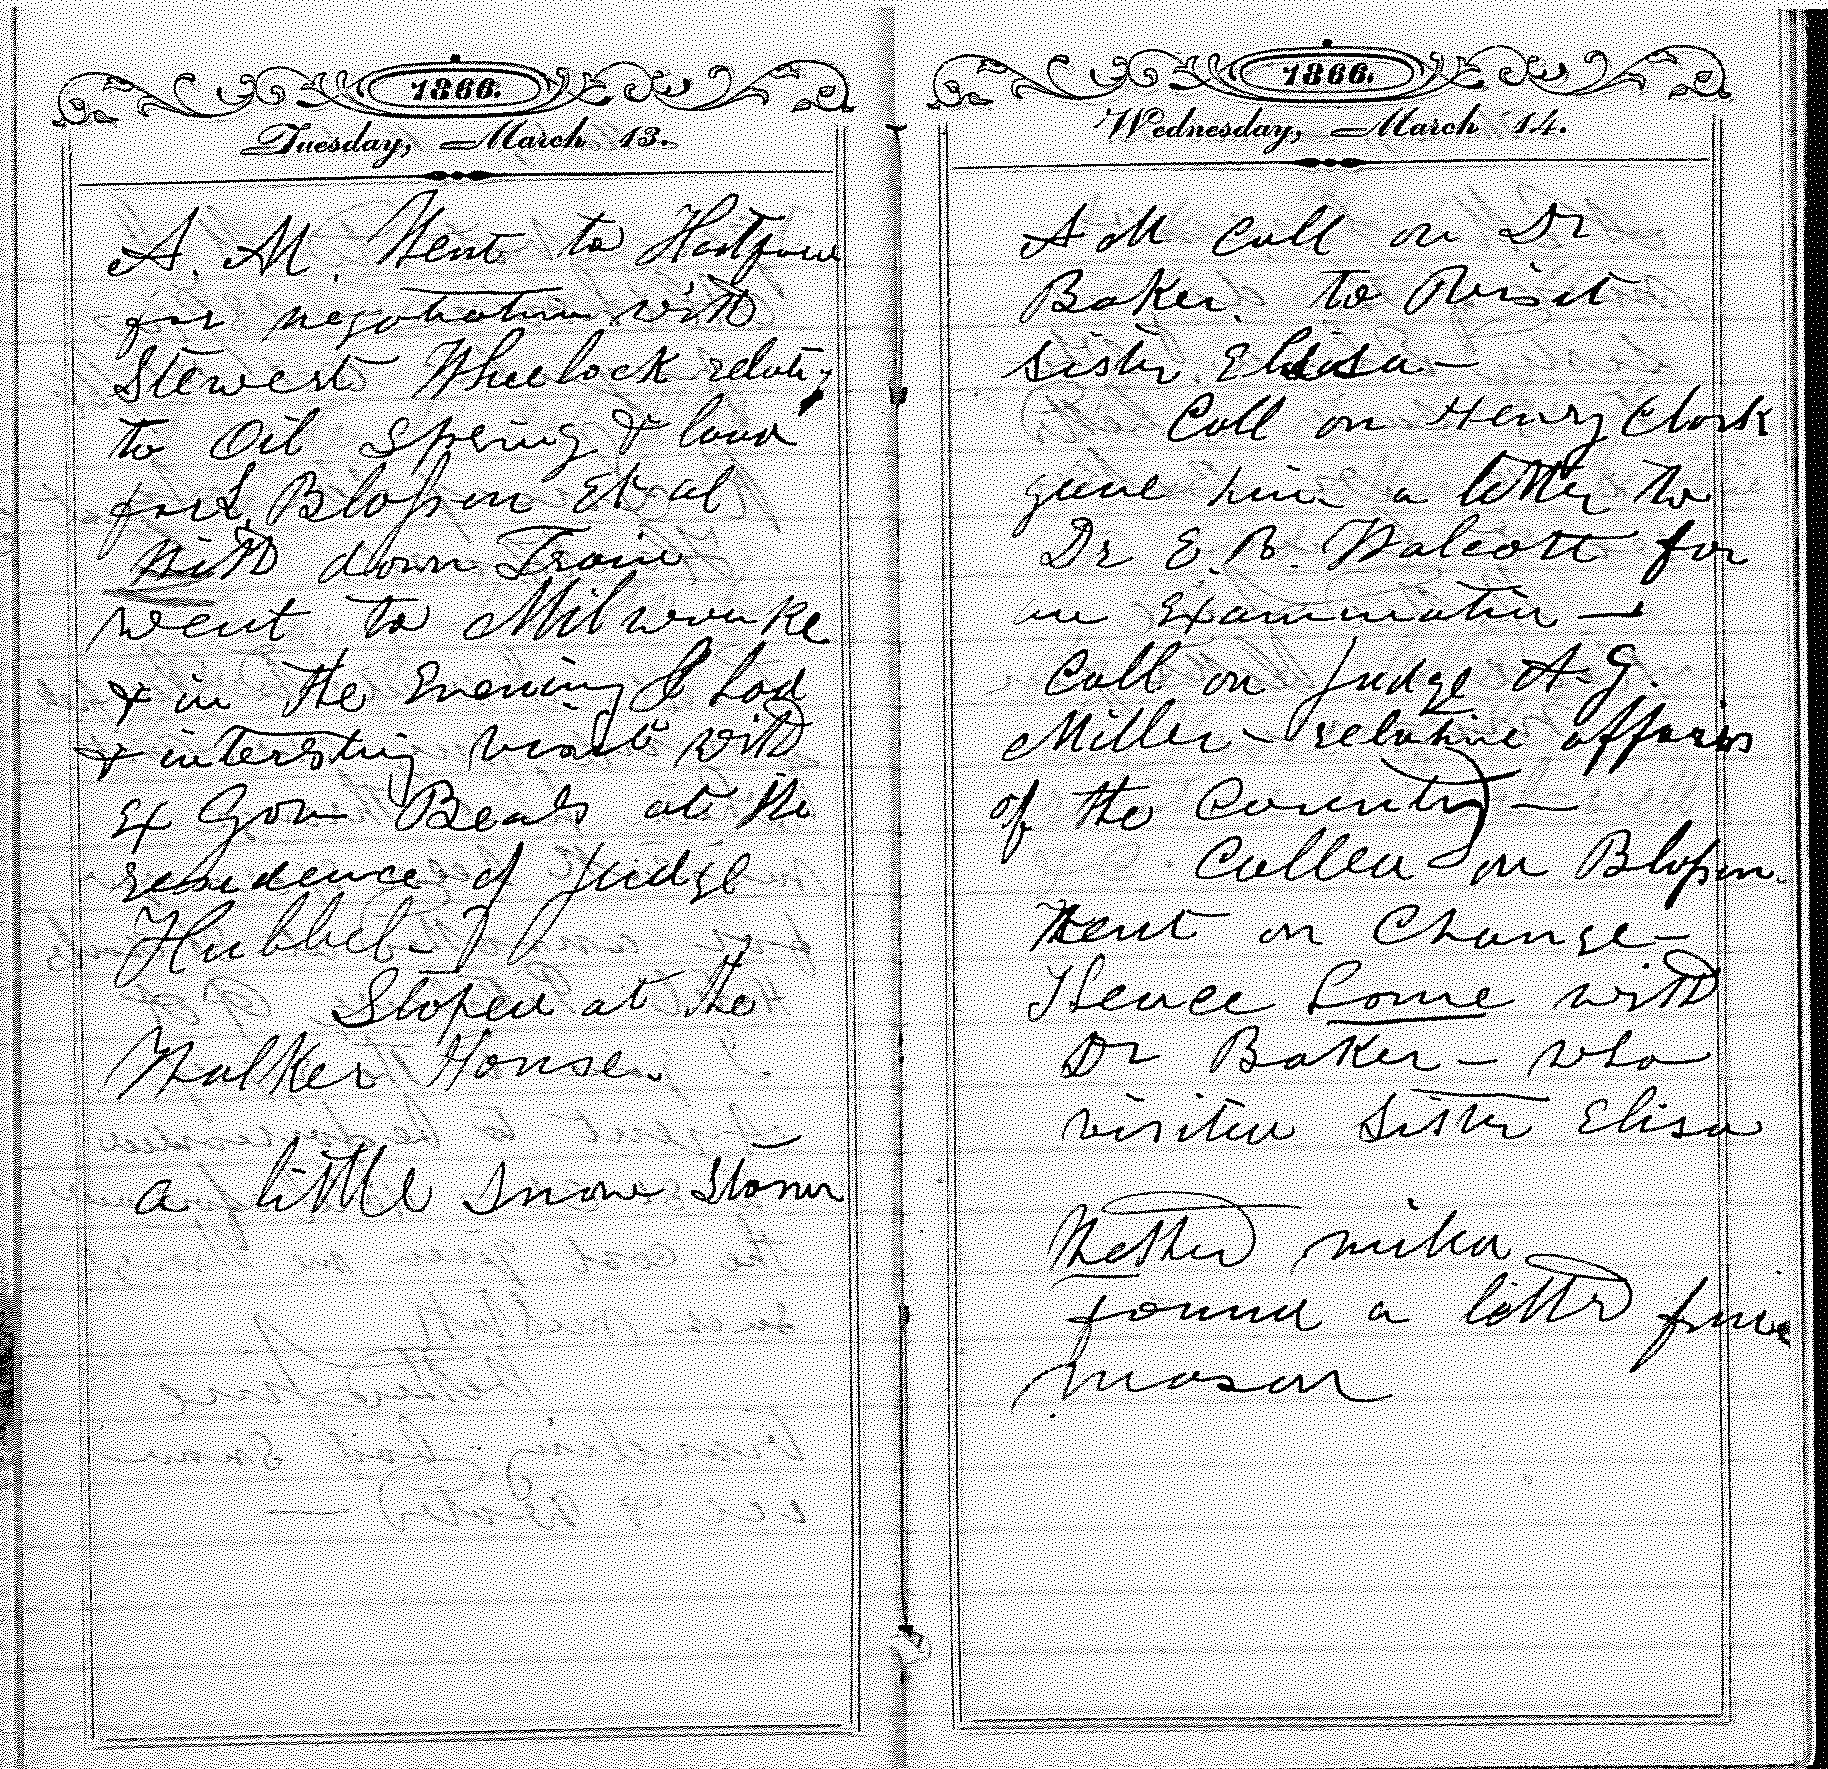 1866.
Tuesday, March 13.
A. M. Went to Hartford
for negotiation with
Stewert Wheelock relativ
to Oil Spring & land
for Blossom Et al
With down Train
went to Milwauke
& in the Evening I had
& interesting visit with
Ex Gov Beals at the
residence of Judge
Hubbel
Stoped at the
Walker House.
a little Snow Storm
1866.
Wednesday, March 14.
A M Call on Dr
Baker. to Visit
sister Elisa —
Call on Henry Clark
gave him a letter to
Dr E. B. Walcott for
an Examination —
Call on Judge A. G.
Miller — relative affairs
of the Country —
Called on Blossom.
Went on Change —
Thence home with
Dr Baker — who
visited Sister Elisa
Wether mild
found a letter from
Mason